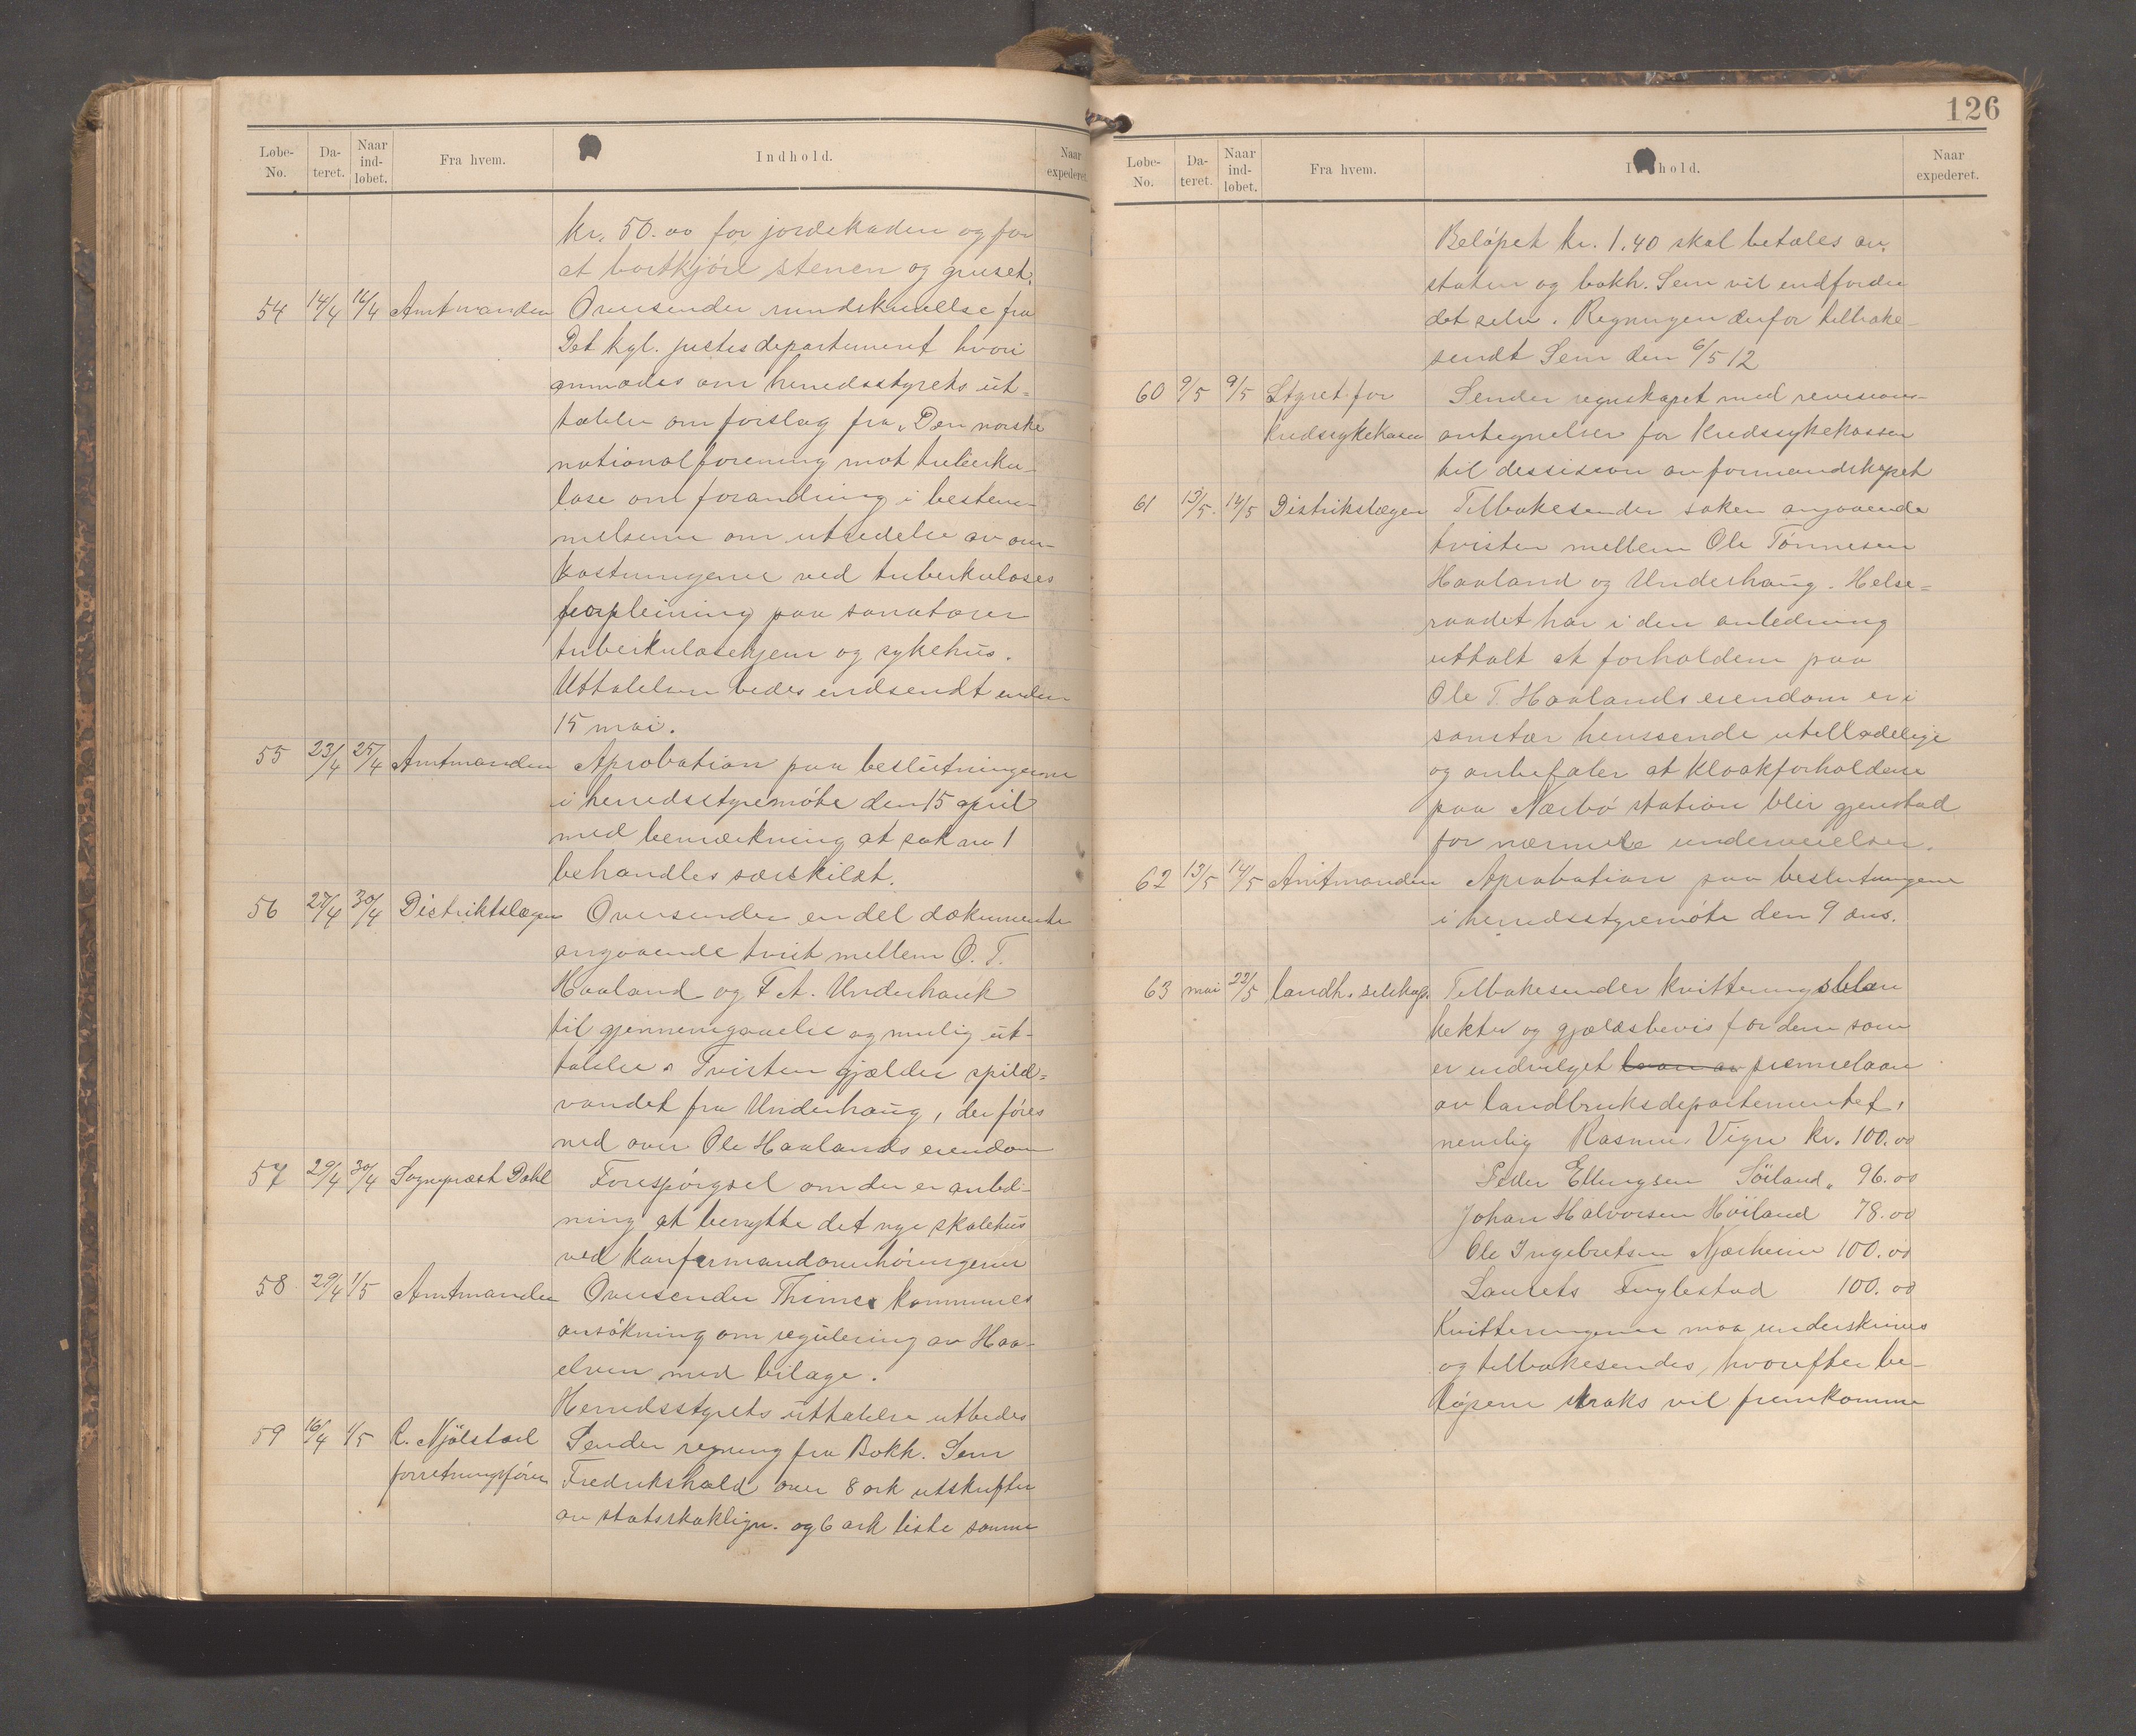 Løbe-No. Da-teret. Naar ind-løbet. Fra hvem. Indhold. Naar expederet.
kr. 50.00 for jordekaden og for
at bortkjøre stenen og gruset.
54 14/4 16/4 Amtmanden Oversender rundskrivelse fra
Det kgl. justisdepartement hvori
anmodes om herredsstyrets ut-
talelse om forslag fra „Den norske
nationalforening mot tuberku-
lose om forandring i bestem-
melserne om utredelse av om-
kostningerne ved tuberkuloses
forpleining paa sanatorier
tuberkulosehjem og sykehus.
Uttalelsen bedes indsendt inden
15 mai.
55 23/4 25/4 Amtmanden Aprobation paa beslutningerne
i herredsstyremøte den 15 april
med bemerkning at sak nr 1
behandles særskildt.
56 27/4 30/4 Distriktslægen Oversender en del dokumenter
angaaende tvist mellem O. T.
Haaland og F A. Underhauk
til gjennemgaaelse og mulig ut-
talelse. Tvisten gjælder spild-
vandet fra Underhaug, der føres
ned over Ole Haalands eiendom
57 29/4 30/4 Sogneprest Dahl Forespørgsel om der er anled-
ning at benytte det nye skolehus
ved konfirmandoverhøringerne
58 29/4 1/5 Amtmanden Oversender Thimes kommunes
ansøkning om regulering av Haa-
elven med bilage.
Herredsstyrets uttalelse utbedes
59 16/4 1/5 R. Njølstad Sender regning fra Bokh. Sem
forretningsfører Fredrikshald over 8 ark utskrifter
av statsskatlign. og 6 ark liste samme
126
Løbe-No. Da-teret. Naar ind-løbet. Fra hvem. Indhold. Naar expederet.
Beløpet kr. 1.40 skal betales av
staten og bokh. Sem vil indfordre
det selv. Regningen derfor tilbake-
sendt Sem den 6/5 12
60 9/5 9/5 Styret for Sender regnskapet med revisions-
kredssykekassen antegnelser for kredssykekassen
til dessision av formandskapet
61 13/5 14/5 Distrikslægen Tilbakesender saken angaaende
tvisten mellem Ole Tønnesen
Haaland og Underhaug. Helse-
raadet har i den anledning
uttalt at forholdene paa
Ole T. Haalands eiendom er i
sanitær henssende utilladelige
og anbefaler at kloakforholdene
paa Nærbø station blir gjenstad
for nærmere underveielser.
62 13/5 14/5 Amtmanden Aprobation paa beslutningene
i herredsstyremøte den 9 ds.
63 mai 22/5 landh. selskap. Tilbakesender kvitteringsblan
ketter og gjældsbevis for dem som
er indvilget laan av premielaan
av landbruksdepartementet,
nemlig Rasmus Vigre kr. 100.00
Peder Ellingsen Söiland „ 96.00
Johan Halvorsen Høiland 78.00
Ole Ingebretsen Njærheim 100.00
Laurits Fuglestad 100.00
Kvitteringerne maa underskrives
og tilbakesendes, hvorefter be-
løpene straks vil fremkomme